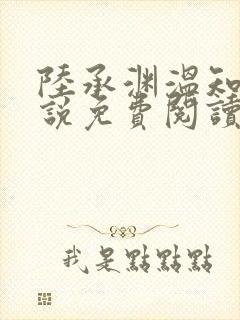 陸承淵溫知
說免費閱讀
我是點點點